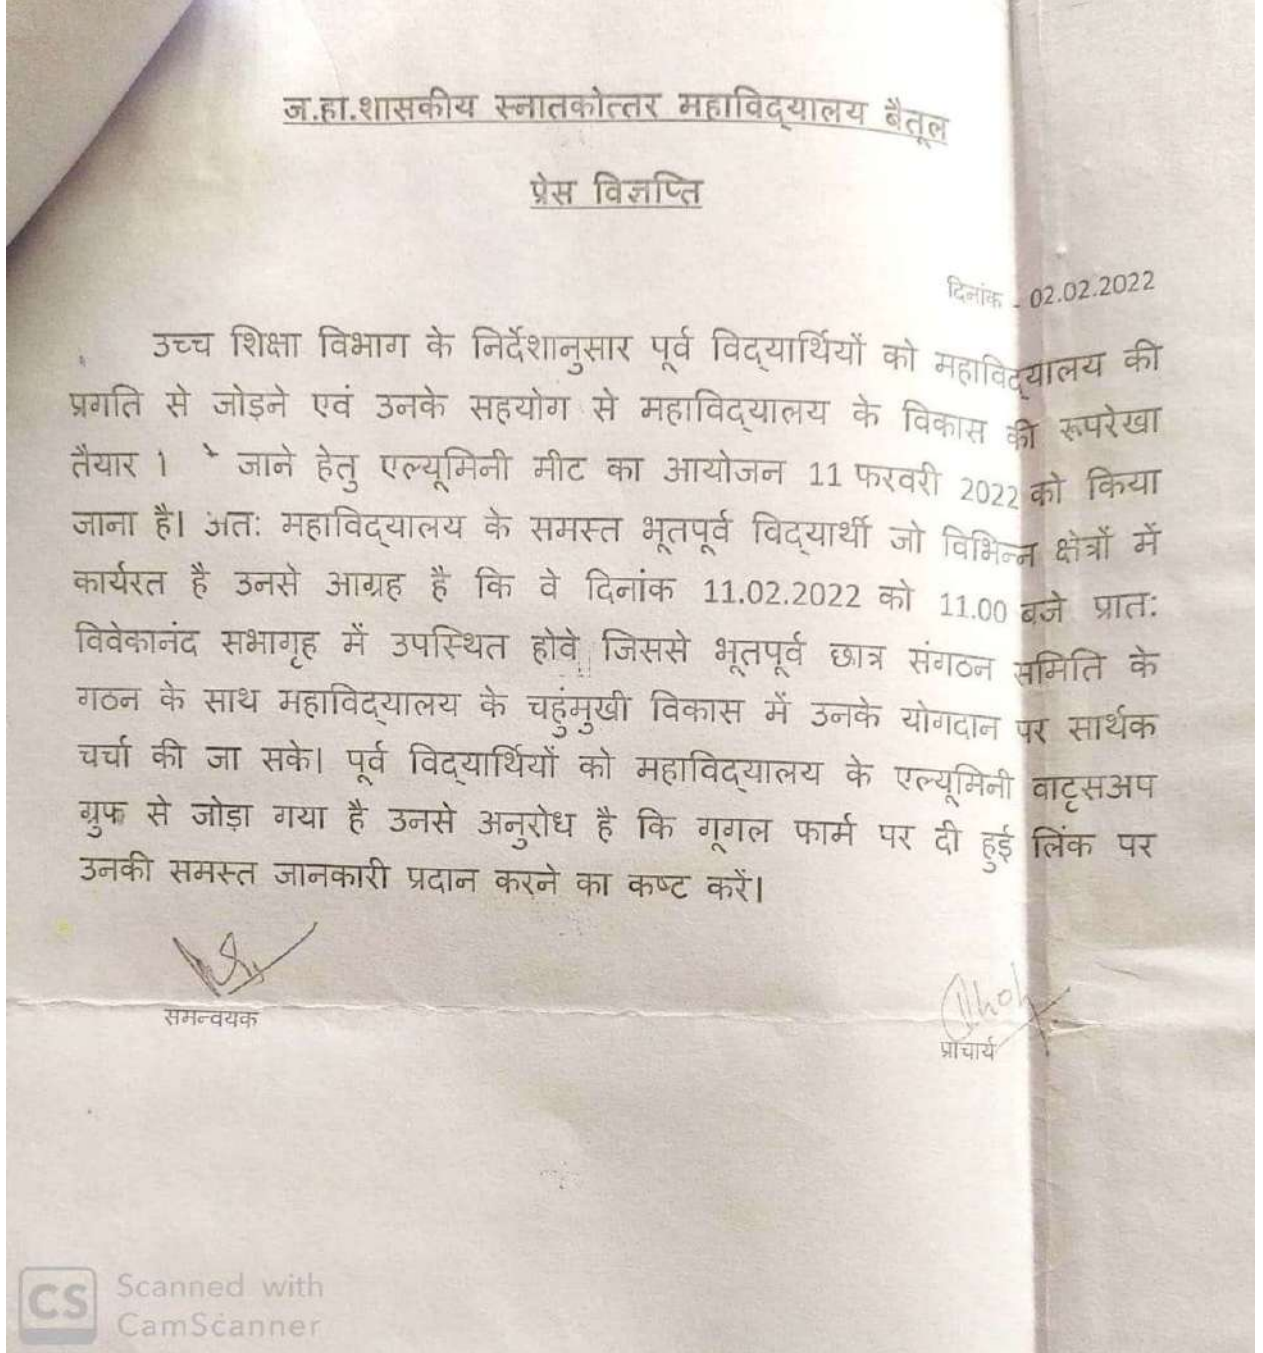 ज.हा.शासकीय स्नातकोत्तर महाविद्यालय बैतूल
प्रेस विज्ञप्ति
दिनांक - 02.02.2022
उच्च शिक्षा विभाग के निर्देशानुसार पूर्व विद्यार्थियों को महाविद्यालय की
प्रगति से जोड़ने एवं उनके सहयोग से महाविद्यालय के विकास की रूपरेखा
तैयार जाने हेतु एल्यूमिनी मीट का आयोजन 11 फरवरी 2022 को किया
जाना है। अतः महाविद्यालय के समस्त भूतपूर्व विद्यार्थी जो विभिन्न क्षेत्रों में
कार्यरत है उनसे आग्रह है कि वे दिनांक 11.02.2022 को 11.00 बजे प्रातः
विवेकानंद सभागृह में उपस्थित होवे जिससे भूतपूर्व छात्र संगठन समिति के
गठन के साथ महाविद्यालय के चहुंमुखी विकास में उनके योगदान पर सार्थक
चर्चा की जा सके। पूर्व विद्यार्थियों को महाविद्यालय के एल्यूमिनी वाट्सअप
ग्रुफ से जोड़ा गया है उनसे अनुरोध है कि गूगल फार्म पर दी हुई लिंक पर
उनकी समस्त जानकारी प्रदान करने का कष्ट करें।
समन्वयक
प्राचार्य
CS Scanned with
CamScanner